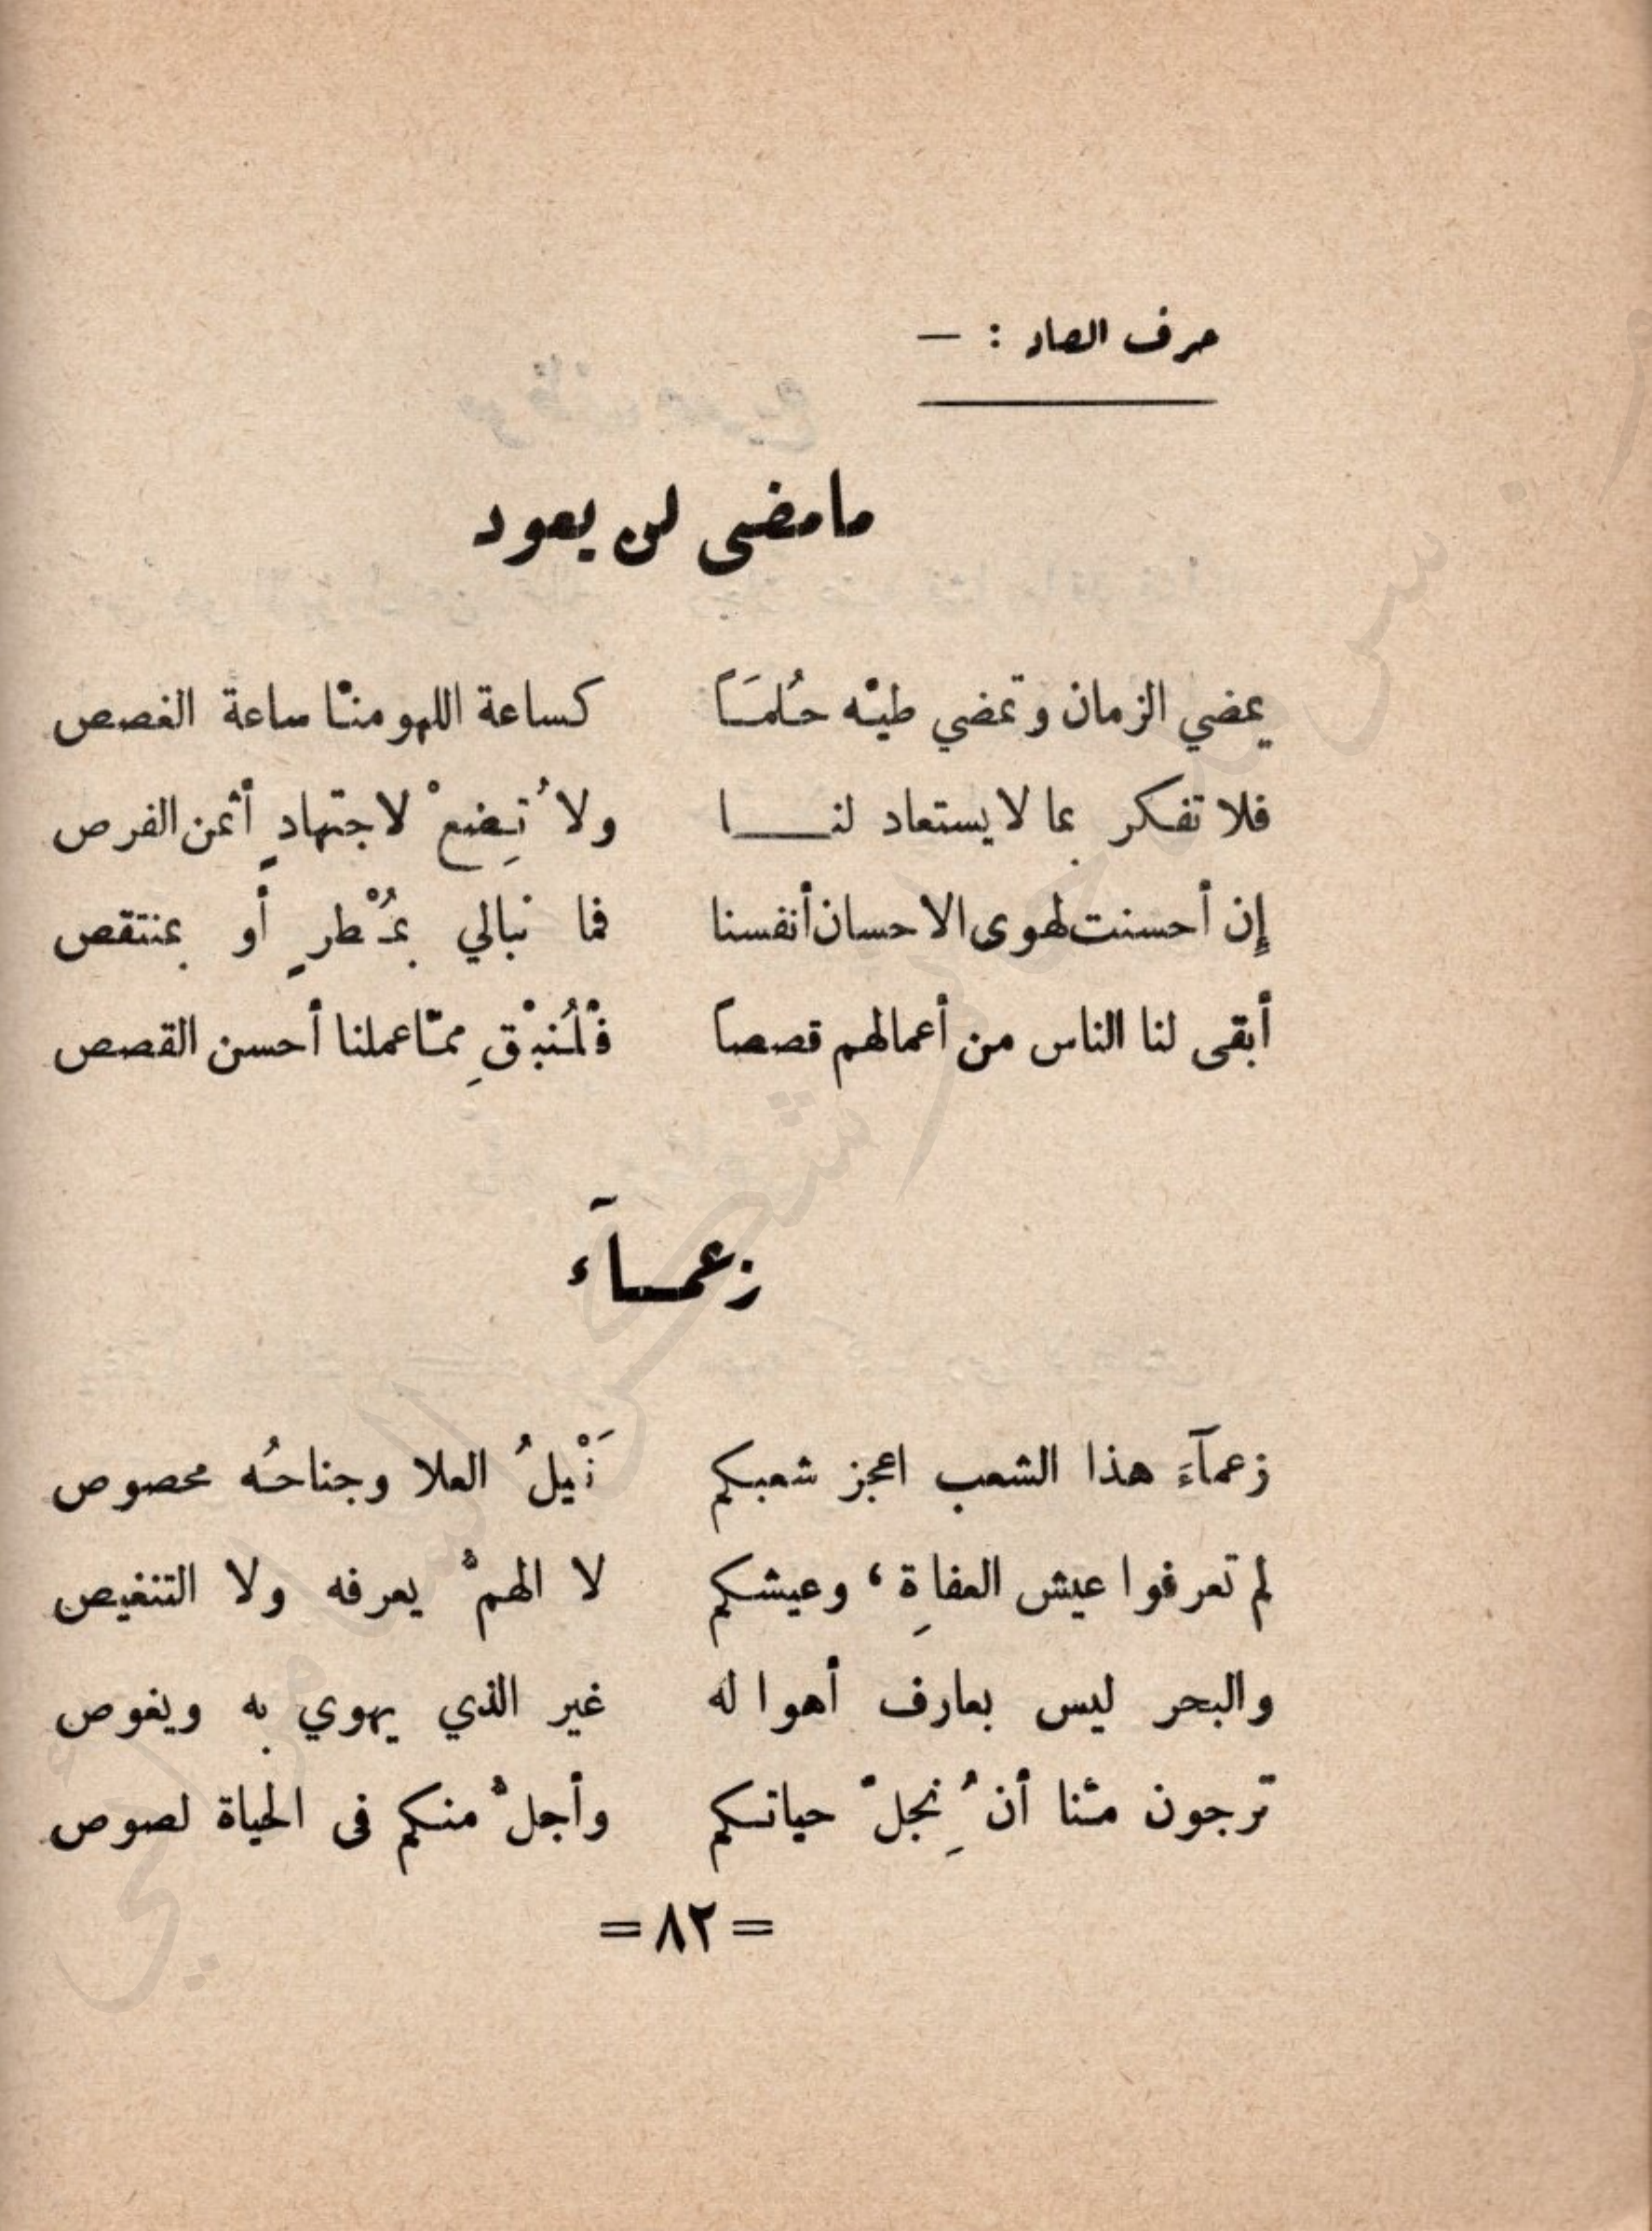 حرف الصاد : —
مامضى لن يعود
يمضي الزمان وتمضي طيّه حُلمَاً كساعة اللهو منّا ساعة الغصص
فلا تفكر بما لا يستعاد لنـــا ولا تُضِعْ لاجتهادٍ أثمن الفرص
إن أحسنت لهوى الاحسان أنفسنا فما نبالي بمُطْرٍ أو بمنتقص
أبقى لنا الناس من أعمالهم قصصاً فلْنُبْقِ ممّا عملنا أحسن القصص
زعمــآء
زعمآءَ هذا الشعب اعجز شعبكم نَيْلُ العلا وجناحُه محصوص
لم تعرفوا عيش العفاةِ، وعيشكم لا الهمُّ يعرفه ولا التنغيص
والبحر ليس بعارف أهواله غير الذي يهوي به ويغوص
ترجون منّا أن نُجِلّ حياتكم وأجلُّ منكم في الحياة لصوص
= ٨٢ =